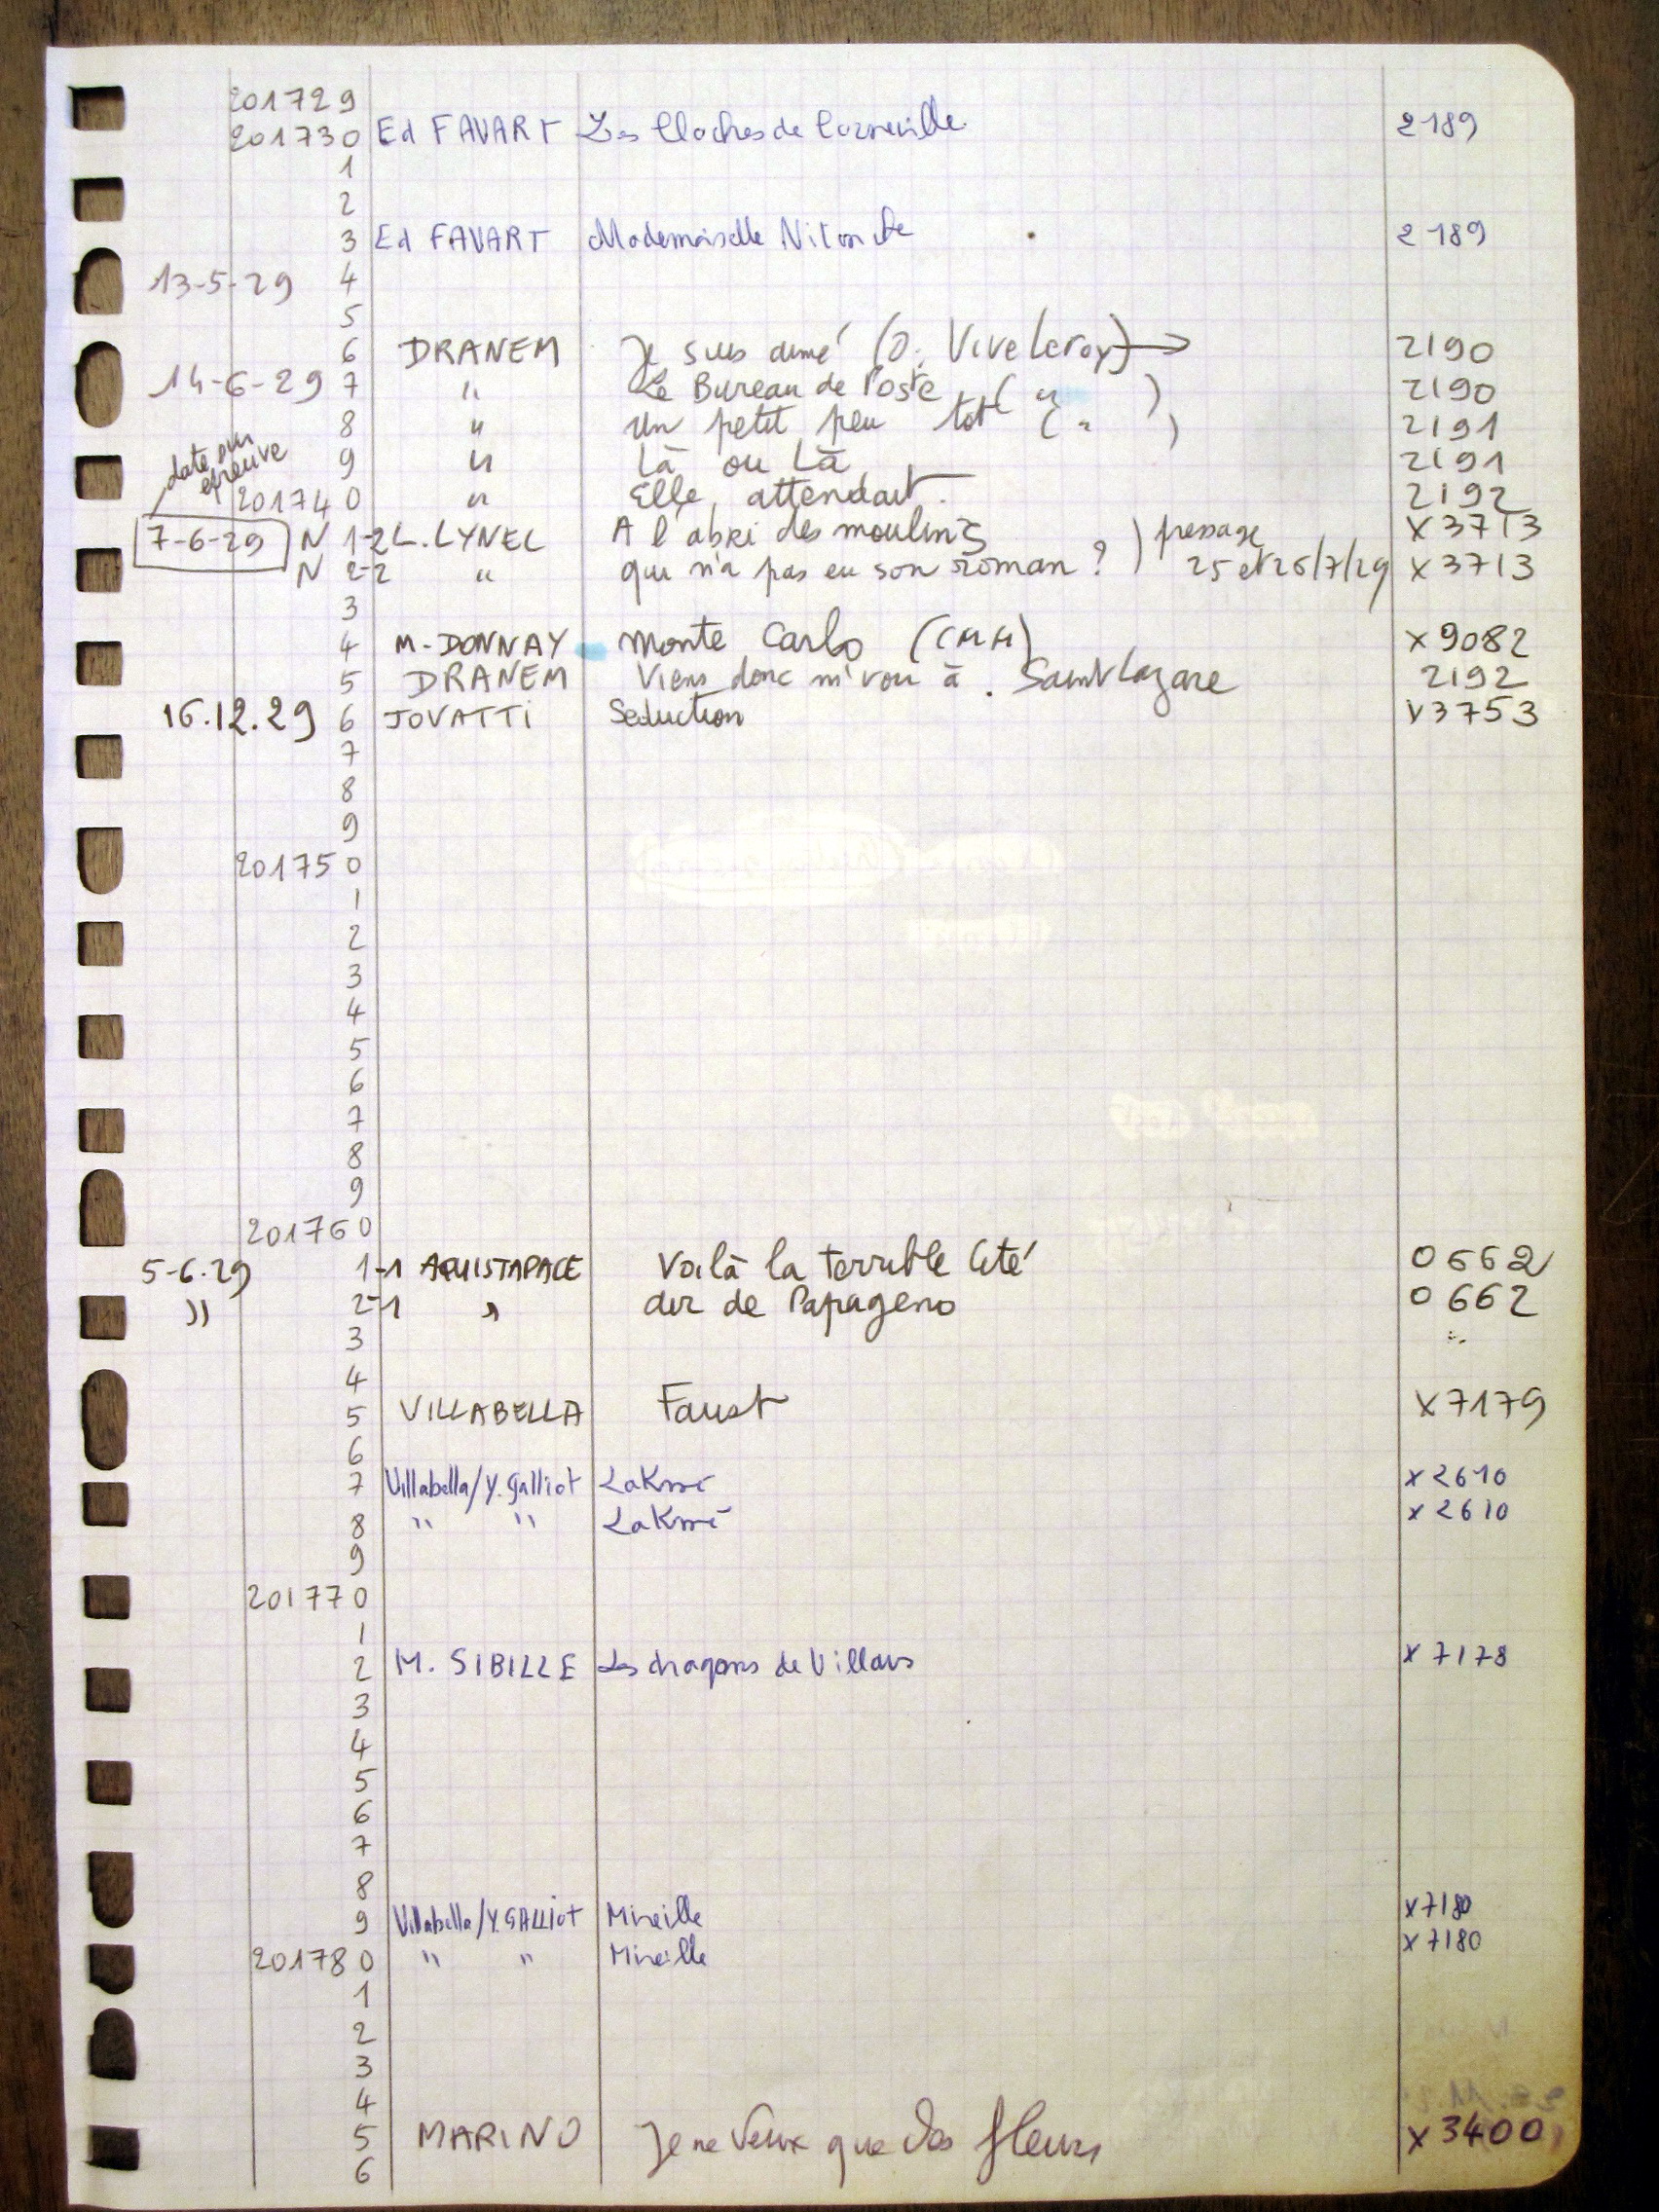 201729
201730 Ed FAVART Les Cloches de Corneville 2189
1
2
3 Ed FAVART Mademoiselle Nitouche 2189
13-5-29 4
5
6 DRANEM Je suis aimé (O. Vive Leroy) → 2190
14-6-29 7 " Le Bureau de Poste ( " ) 2190
8 " un petit peu tot ( " ) 2191
date sur épreuve
9 " Là ou Là 2191
201740 " Elle attendait. 2192
7-6-29 N 1-2 L. LYNEL A l'abri des moulins ) pressage X3713
N 2-2 " qui n'a pas eu son roman ? ) 25 et 26/7/29 X3713
3
4 M. DONNAY Monte Carlo (CMH) X9082
5 DRANEM Viens donc m'voir à . Saint Lazare 2192
16.12.29 6 JOVATTI Seduction X3753
7
8
9
201750
1
2
3
4
5
6
7
8
9
201760
5-6-29 1-1 AQUISTAPACE Voilà la terrible Cité 0662
" 2-1 " air de Papageno 0662
3
4
5 VILLABELLA Faust X7179
6
7 Villabella/Y. Galliot LaKmé X2610
8 " " LaKmé X2610
9
201770
1
2 M. SIBILLE Les dragons de Villars X7178
3
4
5
6
7
8
9 Villabella/Y. GALLIOT Mireille X7180
201780 " " Mireille X7180
1
2
3
4
5 MARINO Je ne veux que des fleurs X3400
6